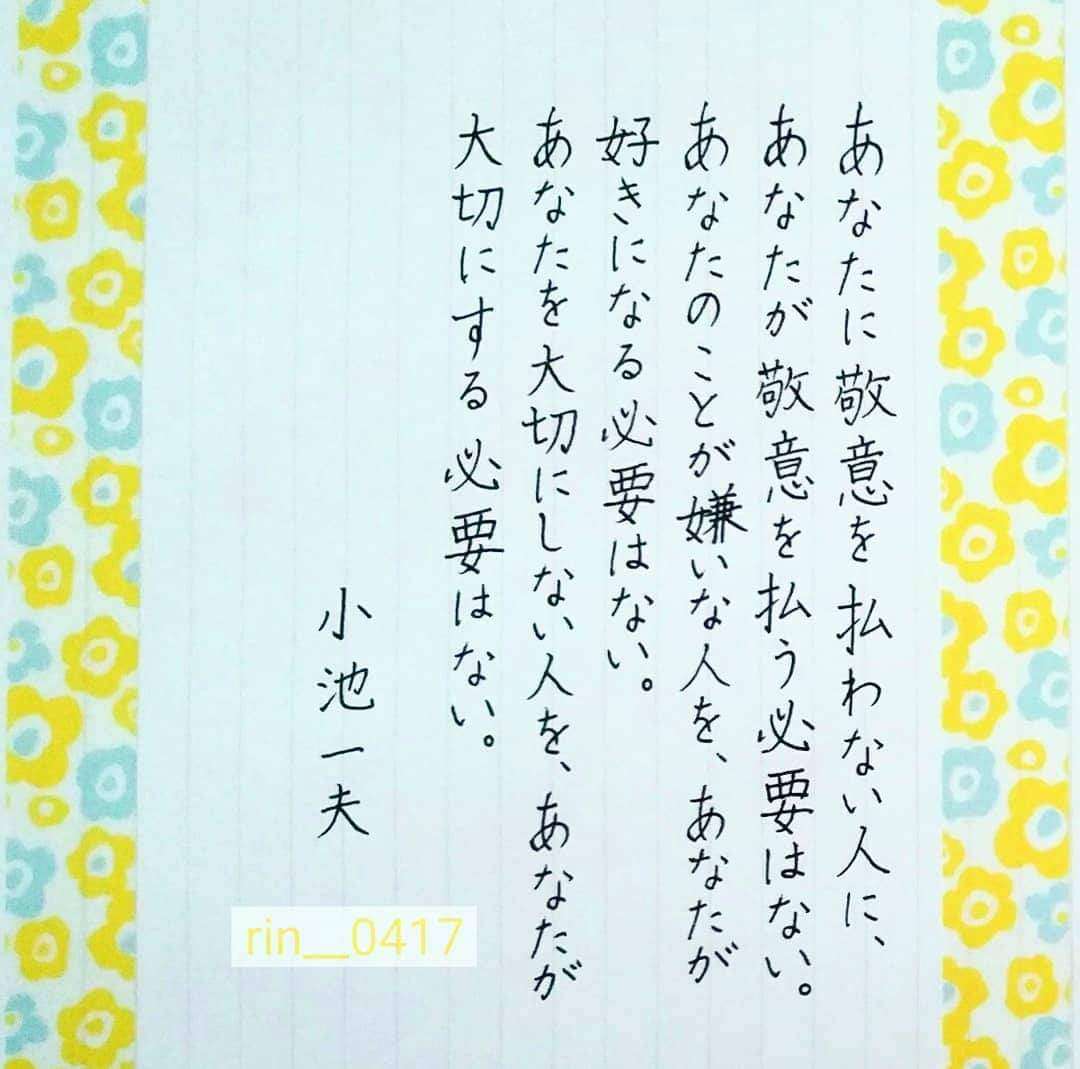 あなたに敬意を払わない人に、
あなたが敬意を払う必要はない。
あなたのことが嫌いな人を、あなたが
好きになる必要はない。
あなたを大切にしない人を、あなたが
大切にする必要はない。
小池一夫
rin__0417